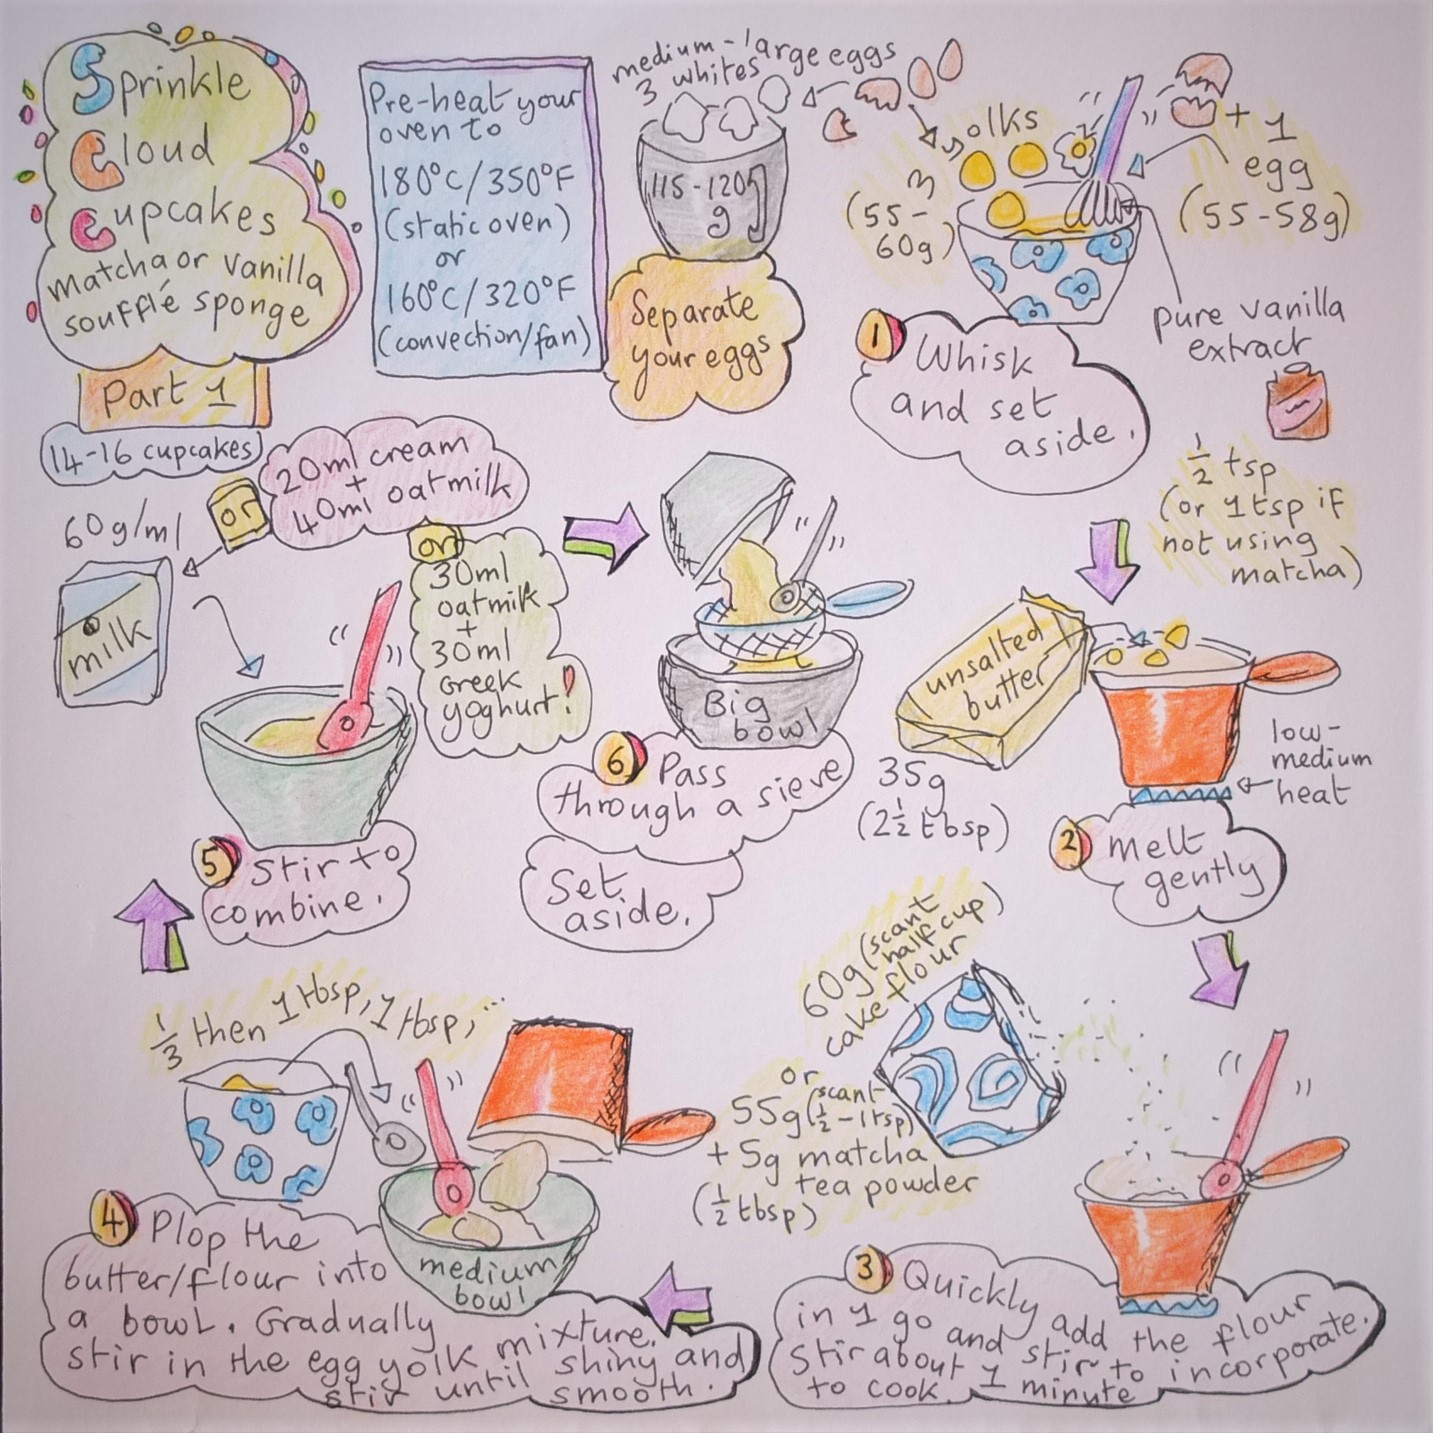 Sprinkle
Cloud
Cupcakes
matcha or vanilla
soufflé sponge
Part 1
14-16 cupcakes
Pre-heat your
oven to
180°C/350°F
(static oven)
or
160°C/320°F
(convection/fan)
medium-large eggs
3 whites
115-120g
Separate
your eggs
yolks
3
(55-
60g)
+ 1
egg
(55-58g)
pure vanilla
extract
1/2 tsp
(or 1 tsp if
not using
matcha)
1 Whisk
and set
aside.
unsalted
butter
35g
(2 1/2 tbsp)
low-
medium
heat
2 Melt
gently
60g (scant
half cup)
cake flour
or
55g (scant
1/2 - 1 tsp)
+ 5g matcha
tea powder
(1/2 tbsp)
3 Quickly add the flour
in 1 go and stir to incorporate.
Stir about 1 minute
to cook.
1/3 then 1 tbsp, 1 tbsp, ...
medium
bowl
4 Plop the
butter/flour into
a bowl. Gradually
stir in the egg yolk mixture.
stir until shiny and
smooth.
60g/ml
milk
or
20ml cream
+
40ml oatmilk
or
30ml
oatmilk
+
30ml
Greek
yoghurt!
5 Stir to
combine.
Big
bowl
6 Pass
through a sieve
Set
aside.